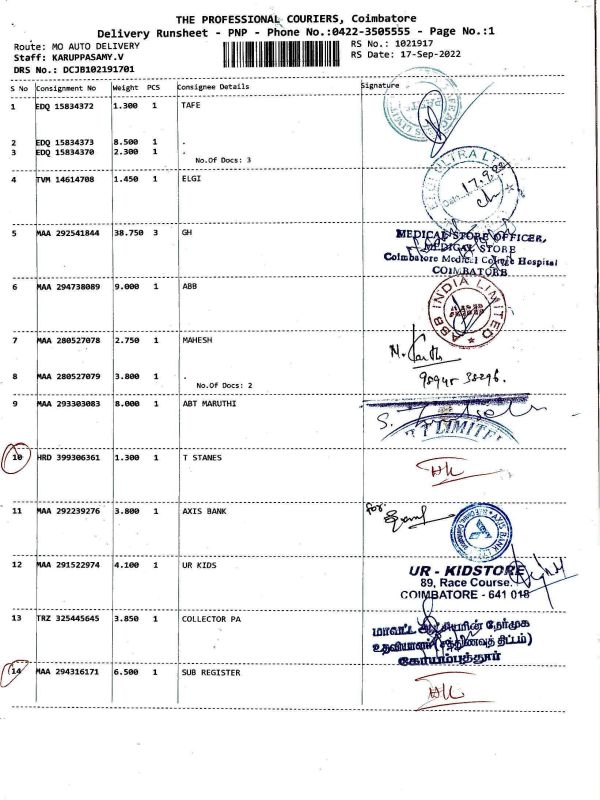 THE PROFESSIONAL COURIERS, Coimbatore
Delivery Runsheet - PNP - Phone No.:0422-3505555 - Page No.:1
Route: MO AUTO DELIVERY RS No.: 1021917
Staff: KARUPPASAMY.V RS Date: 17-Sep-2022
DRS No.: DCJB102191701
S No Consignment No Weight PCS Consignee Details Signature
1 EDQ 15834372 1.300 1 TAFE
2 EDQ 15834373 8.500 1 .
3 EDQ 15834370 2.300 1 .
No.Of Docs: 3
4 TVM 14614708 1.450 1 ELGI
17.9.22
5 MAA 292541844 38.750 3 GH
MEDICAL STORE OFFICER,
MEDICAL STORE
Coimbatore Medical College Hospital
COIMBATORE
6 MAA 294738089 9.000 1 ABB
ABB INDIA LIMITED
7 MAA 280527078 2.750 1 MAHESH
8 MAA 280527079 3.800 1 .
No.Of Docs: 2
9 MAA 293303083 8.000 1 ABT MARUTHI
T LIMITE
10 HRD 399306361 1.300 1 T STANES
11 MAA 292239276 3.800 1 AXIS BANK
for
AXIS BANK LTD
12 MAA 291522974 4.100 1 UR KIDS
UR - KIDSTORE
89, Race Course.
COIMBATORE - 641 018
13 TRZ 325445645 3.850 1 COLLECTOR PA
மாவட்ட ஆட்சியரின் நேர்முக
உதவியாளர் (சத்துணவுத் திட்டம்)
கோயம்புத்தூர்
14 MAA 294316171 6.500 1 SUB REGISTER